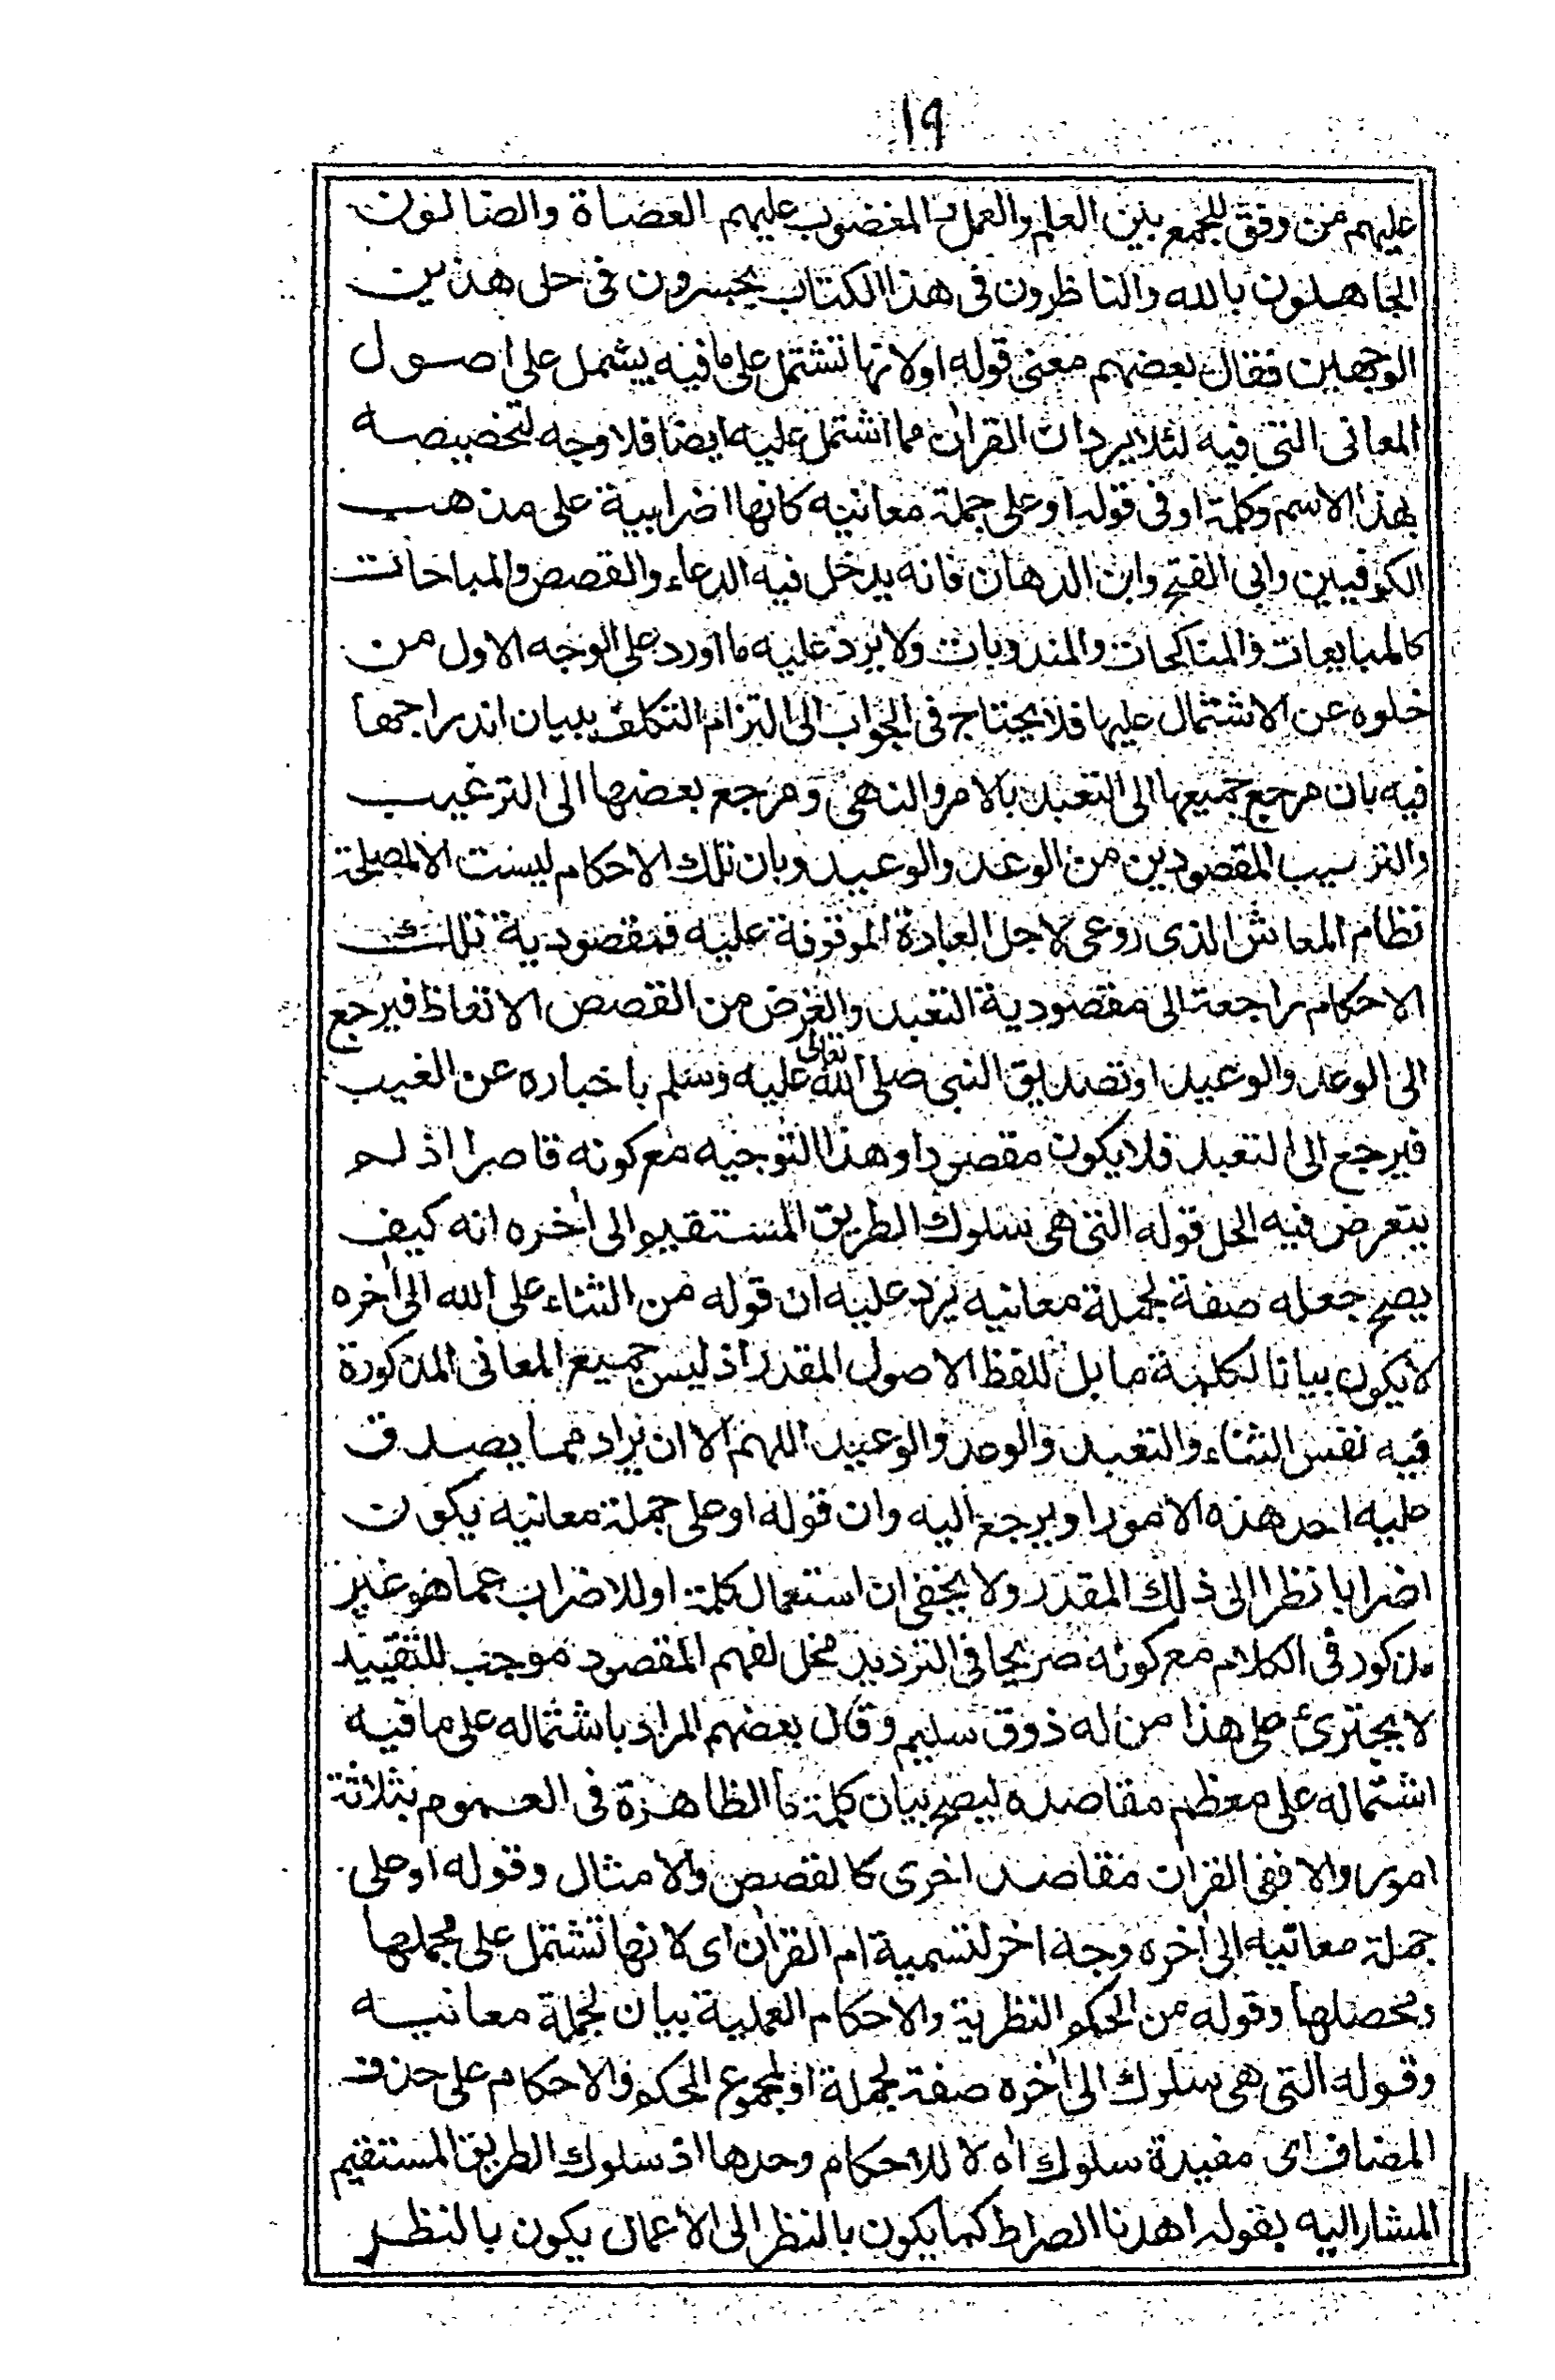 ١٩
عليهم من وفق للجمع بين العلم والعمل والمغضوب عليهم العصاة والضالون
الجاهلون بالله والناظرون فى هذا الكتاب يحسرون فى حل هذين
الوجهين فقال بعضهم معنى قوله اولانها تشتمل على ما فيه يشمل على اصول
المعانى التى فيه لئلا يرد ان القران مما اشتمل عليه ايضا فلا وجه لتخصيصه
بهذا الاسم وكلمة او فى قوله او على جملة معانيه كانها اضرابية على مذهب
الكوفيين وابى الفتح وابن الدهان فانه يدخل فيه الدعاء والقصص والمباحات
كالمبايعات والمناكحات والمندوبات ولا يرد عليه ما اورد على الوجه الاول من
خلوه عن الاشتمال عليها فلا يحتاج فى الجواب الى التزام التكلف ببيان اندراجها
فيه بان مرجع جميعها الى التعبد بالامر والنهى ومرجع بعضها الى الترغيب
والترهيب المقصودين من الوعد والوعيد وبان تلك الاحكام ليست الا لمصلحة
نظام المعاش الذى روعى لاجل العبادة الموقوفة عليه فمقصودية تلك
الاحكام راجعة الى مقصودية التعبد والغرض من القصص الاتعاظ فيرجع
الى الوعد والوعيد او تصديق النبى صلى الله تعالى عليه وسلم باخباره عن الغيب
فيرجع الى التعبد فلا يكون مقصودا وهذا التوجيه مع كونه قاصرا اذ لم
يتعرض فيه الحل قوله التى هى سلوك الطريق المستقيم الى اخره انه كيف
يصح جعله صفة لجملة معانيه يرد عليه ان قوله من الثناء على الله الى اخره
لا يكون بيانا لكلمة ما بل للفظ الاصول المقدر اذ ليس جميع المعانى المذكورة
فيه نفس الثناء والتعبد والوعد والوعيد اللهم الا ان يراد مما يصدق
عليه احد هذه الامور او يرجع اليه وان قوله او على جملة معانيه يكون
اضرابا نظرا الى ذلك المقدر ولا يخفى ان استعمال كلمة او للاضراب عما هو غير
مذكور فى الكلام مع كونه صريحا فى الترديد مخل لفهم المقصود موجب للتقييد
لا يجترئ على هذا من له ذوق سليم وقال بعضهم المراد باشتماله على ما فيه
اشتماله على معظم مقاصده ليصح بيان كلمة ما الظاهرة فى العموم بثلاثة
امور والا ففى القران مقاصد اخرى كالقصص والامثال وقوله او على
جملة معانيه الى اخره وجه اخر لتسمية ام القران اى لانها تشتمل على مجملها
ومحصلها وقوله من الحكم النظرية والاحكام العملية بيان لجملة معانيه
وقوله التى هى سلوك الى اخره صفة لجملة او لمجموع الحكم والاحكام على حذف
المضاف اى مفيدة سلوك اه لا للاحكام وحدها اذ سلوك الطريق المستقيم
المشار اليه بقوله اهدنا الصراط كما يكون بالنظر الى الاعمال يكون بالنظر